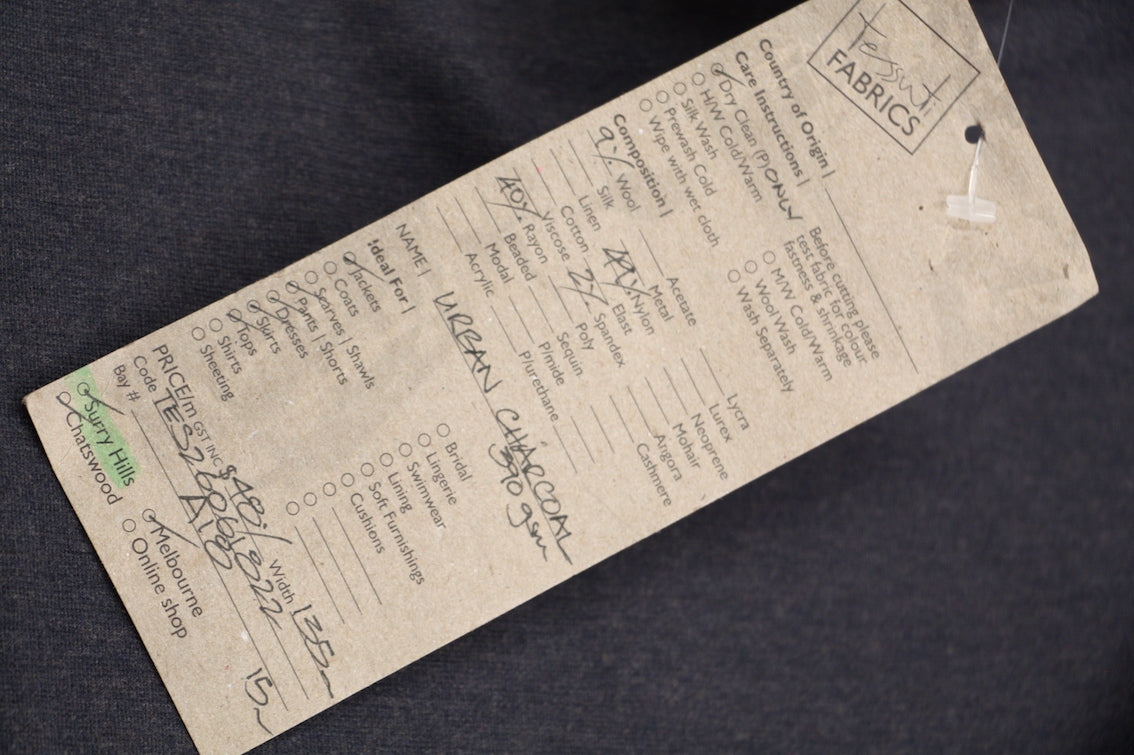 Tessuti
FABRICS
Country of Origin |
Care Instructions |
Dry Clean (P) ONLY
H/W Cold/Warm
Silk Wash
Prewash Cold
Wipe with wet cloth
Before cutting please
test fabric for colour
fastness & shrinkage
M/W Cold/Warm
Wool Wash
Wash Separately
Composition |
9% Wool
Silk
Linen
Cotton
Viscose
40% Rayon
Beaded
Modal
Acrylic
Acetate
Metal
49% Nylon
Elast
2% Spandex
Poly
Sequin
P/mide
P/urethane
Lycra
Lurex
Neoprene
Mohair
Angora
Cashmere
NAME | URBAN CHARCOAL
390 gsm
Ideal For |
Jackets
Coats
Scarves | Shawls
Pants | Shorts
Dresses
Skirts
Tops
Shirts
Sheeting
Bridal
Lingerie
Swimwear
Lining
Soft Furnishings
Cushions
PRICE/m GST INC $48./ Width 135m
Code
Bay #
15m
Surry Hills
Chatswood
Melbourne
Online shop